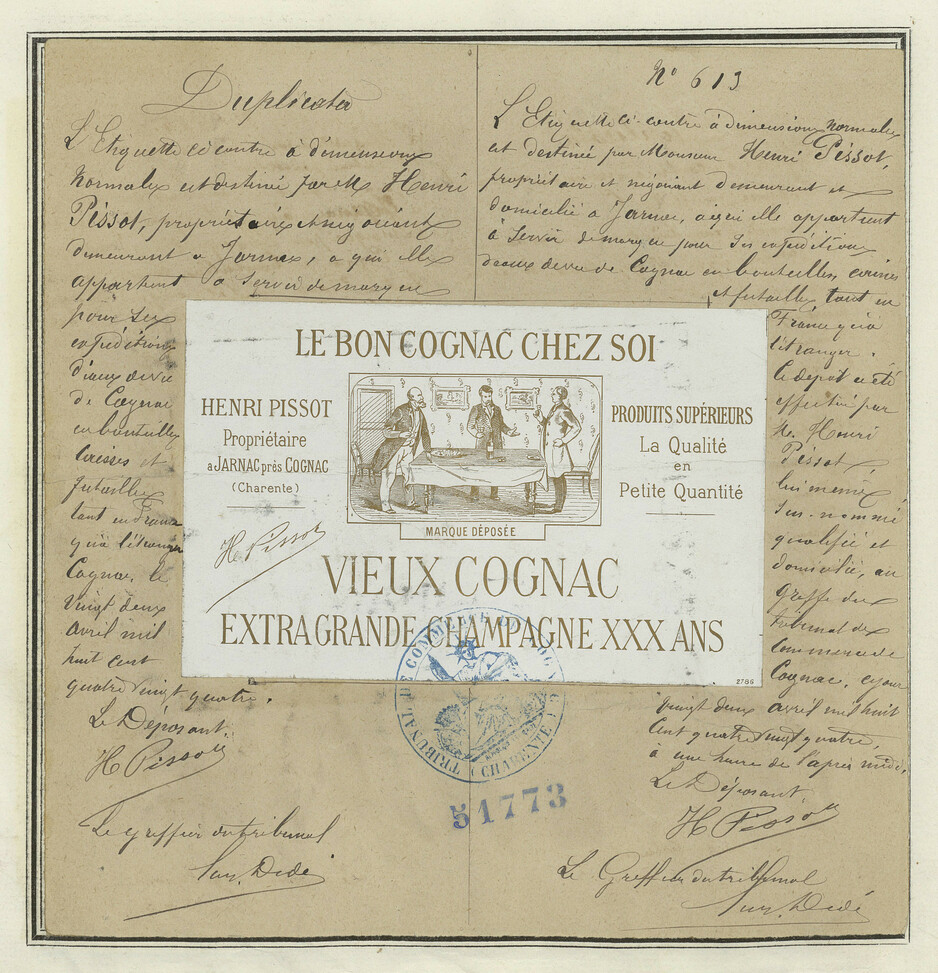 Duplicata
L'Etiquette ci contre à dimensions
normales est destinée par M Henri
Pissot, propriétaire et négociant
demeurant à Jarnac, à qui elle
appartient à servir de marque
pour ses
expéditions
d'eaux de vie
de Cognac
en bouteilles
caisses et
futailles
tant en France
qu'à l'étranger
Cognac, le
vingt deux
avril mil
huit cent
quatre vingt quatre.
Le Déposant,
H Pissot
Le greffier du tribunal
N° 613
L'Etiquette ci-contre à dimensions normales
est destinée par Monsieur Henri Pissot,
propriétaire et négociant demeurant et
domicilié à Jarnac, à qui elle appartient
à servir de marque pour ses expéditions
d'eaux de vie de Cognac en bouteilles, caisses
et futailles tant en
France qu'à
l'étranger.
Ce dépot a été
effectué par
M. Henri
Pissot
lui même
sus-nommé
qualifié et
domicilié, au
greffe du
tribunal de
commerce de
Cognac, ce jour
vingt deux avril mil huit
cent quatre vingt quatre,
à une heure de l'après midi.
Le Déposant,
H Pissot
Le Greffier du tribunal
LE BON COGNAC CHEZ SOI
HENRI PISSOT
Propriétaire
a JARNAC près COGNAC
(Charente)
PRODUITS SUPÉRIEURS
La Qualité
en
Petite Quantité
MARQUE DÉPOSÉE
H. Pissot
VIEUX COGNAC
EXTRA GRANDE CHAMPAGNE XXX ANS
2786
TRIBUNAL DE COMMERCE DE COGNAC
(CHARENTE)
51773